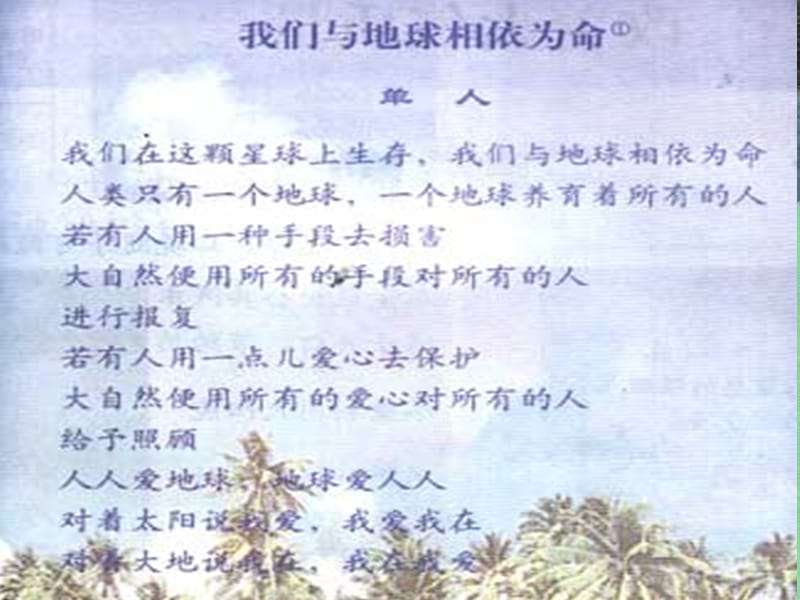 我们与地球相依为命①
单 人
我们在这颗星球上生存，我们与地球相依为命
人类只有一个地球，一个地球养育着所有的人
若有人用一种手段去损害
大自然便用所有的手段对所有的人
进行报复
若有人用一点儿爱心去保护
大自然便用所有的爱心对所有的人
给予照顾
人人爱地球，地球爱人人
对着太阳说我爱，我爱我在
对着大地说我在，我在我爱